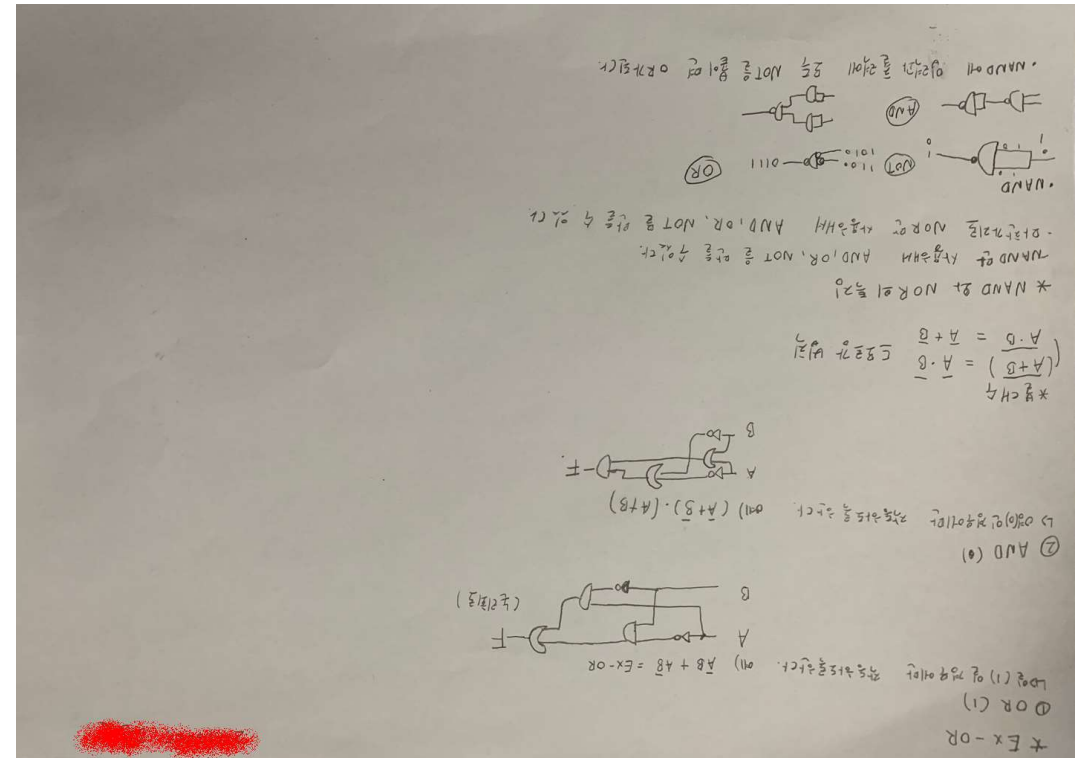 * Ex-OR
① OR (1)
↳ 일(1)일 경우에만 작동하도록 한다. 예) A̅B + AB̅ = Ex-OR
A
B
F
(논리회로)
② AND (0)
↳ 영(0)인 경우에만 작동하도록 한다. 예) (A̅+B̅)·(A+B)
A
B
F
* 불대수
(A+B)̅ = A̅·B̅
A·B̅ = A̅+B̅ 드모르강 법칙
* NAND 와 NOR의 특징
NAND만 사용해서 AND, OR, NOT을 만들 수 있다.
·마찬가지로 NOR만 사용해서 AND, OR, NOT을 만들 수 있다.
·NAND
NOT
1100
1010
0111
OR
AND
·NAND에 입력값 둘 모두 NOT을 붙이면 OR가 된다.